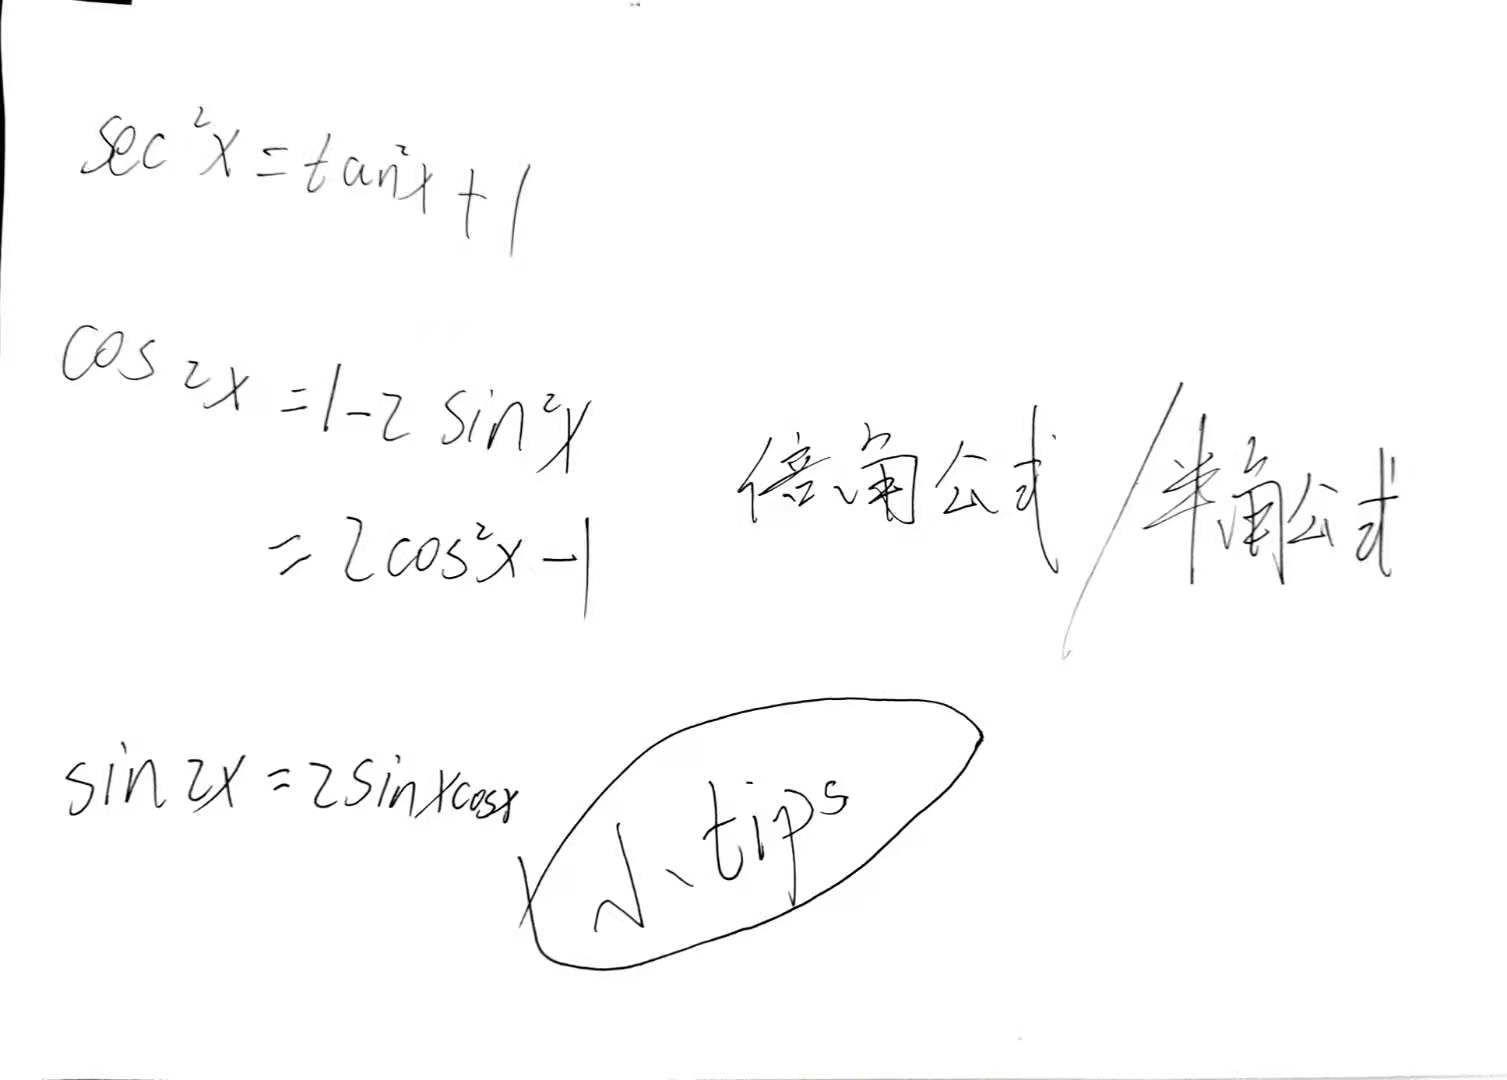 sec²x=tan²x+1
cos2x=1-2sin²x
=2cos²x-1
倍角公式/半角公式
sin2x=2sinxcosx
小tips